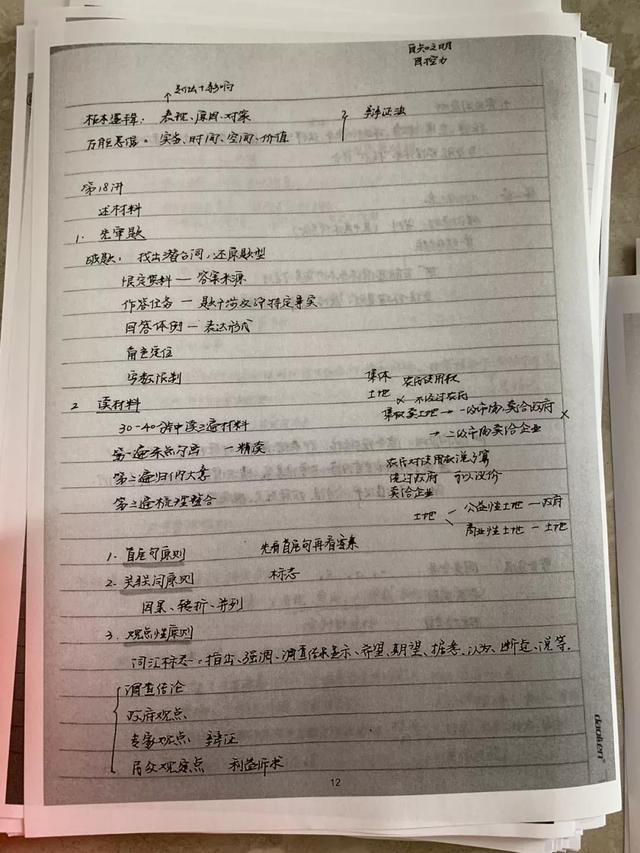 自知之明
自控力
↑划法+影响
标本逻辑: 表现、原因、对策
2 辩证法
万能思维: 实务、时间、空间、价值
第18讲
述材料
1. 先审题
破题: 找出潜台词,还原题型
限定资料 — 答案来源
作答任务 — 题干涉及评特定事实
回答体例 — 表达形式
角色定位
字数限制
2 读材料
30-40分中读三遍材料
第一遍来点勾画 — 精读
第二遍归纳大意
第三遍梳理整合
集体 农民使用权
土地 × 不经过农府
集权卖土地 → 一级市场,卖给政府 ×
→ 二级市场卖给企业
农民对使用权说了算
绕过政府 可以议价
卖给企业
土地 < 公益性土地 — 政府
商业性土地 — 土地
1. 首尾句原则 先看首尾句再看容来
2. 关联词原则 标志
因果、转折、并列
3. 观点性原则
词汇标志:指出、强调、调查结果显示、希望、期望、据悉、认为、断定、说等.
调查结论
政府观点
专家观点 辩证
居众观察点 利益诉求
12
daolien®